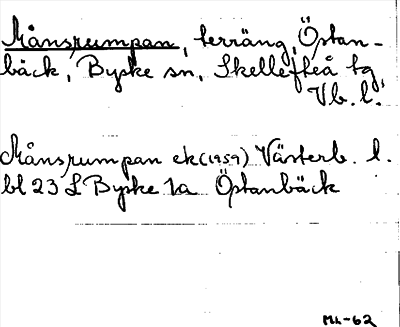 Månsrumpan, terräng, Östan-
bäck, Byske sn, Skellefteå tg
Vb. l.
Månsrumpan ek (1959) Västerb. l.
bl 23 L Byske 1a Östanbäck
ML-62